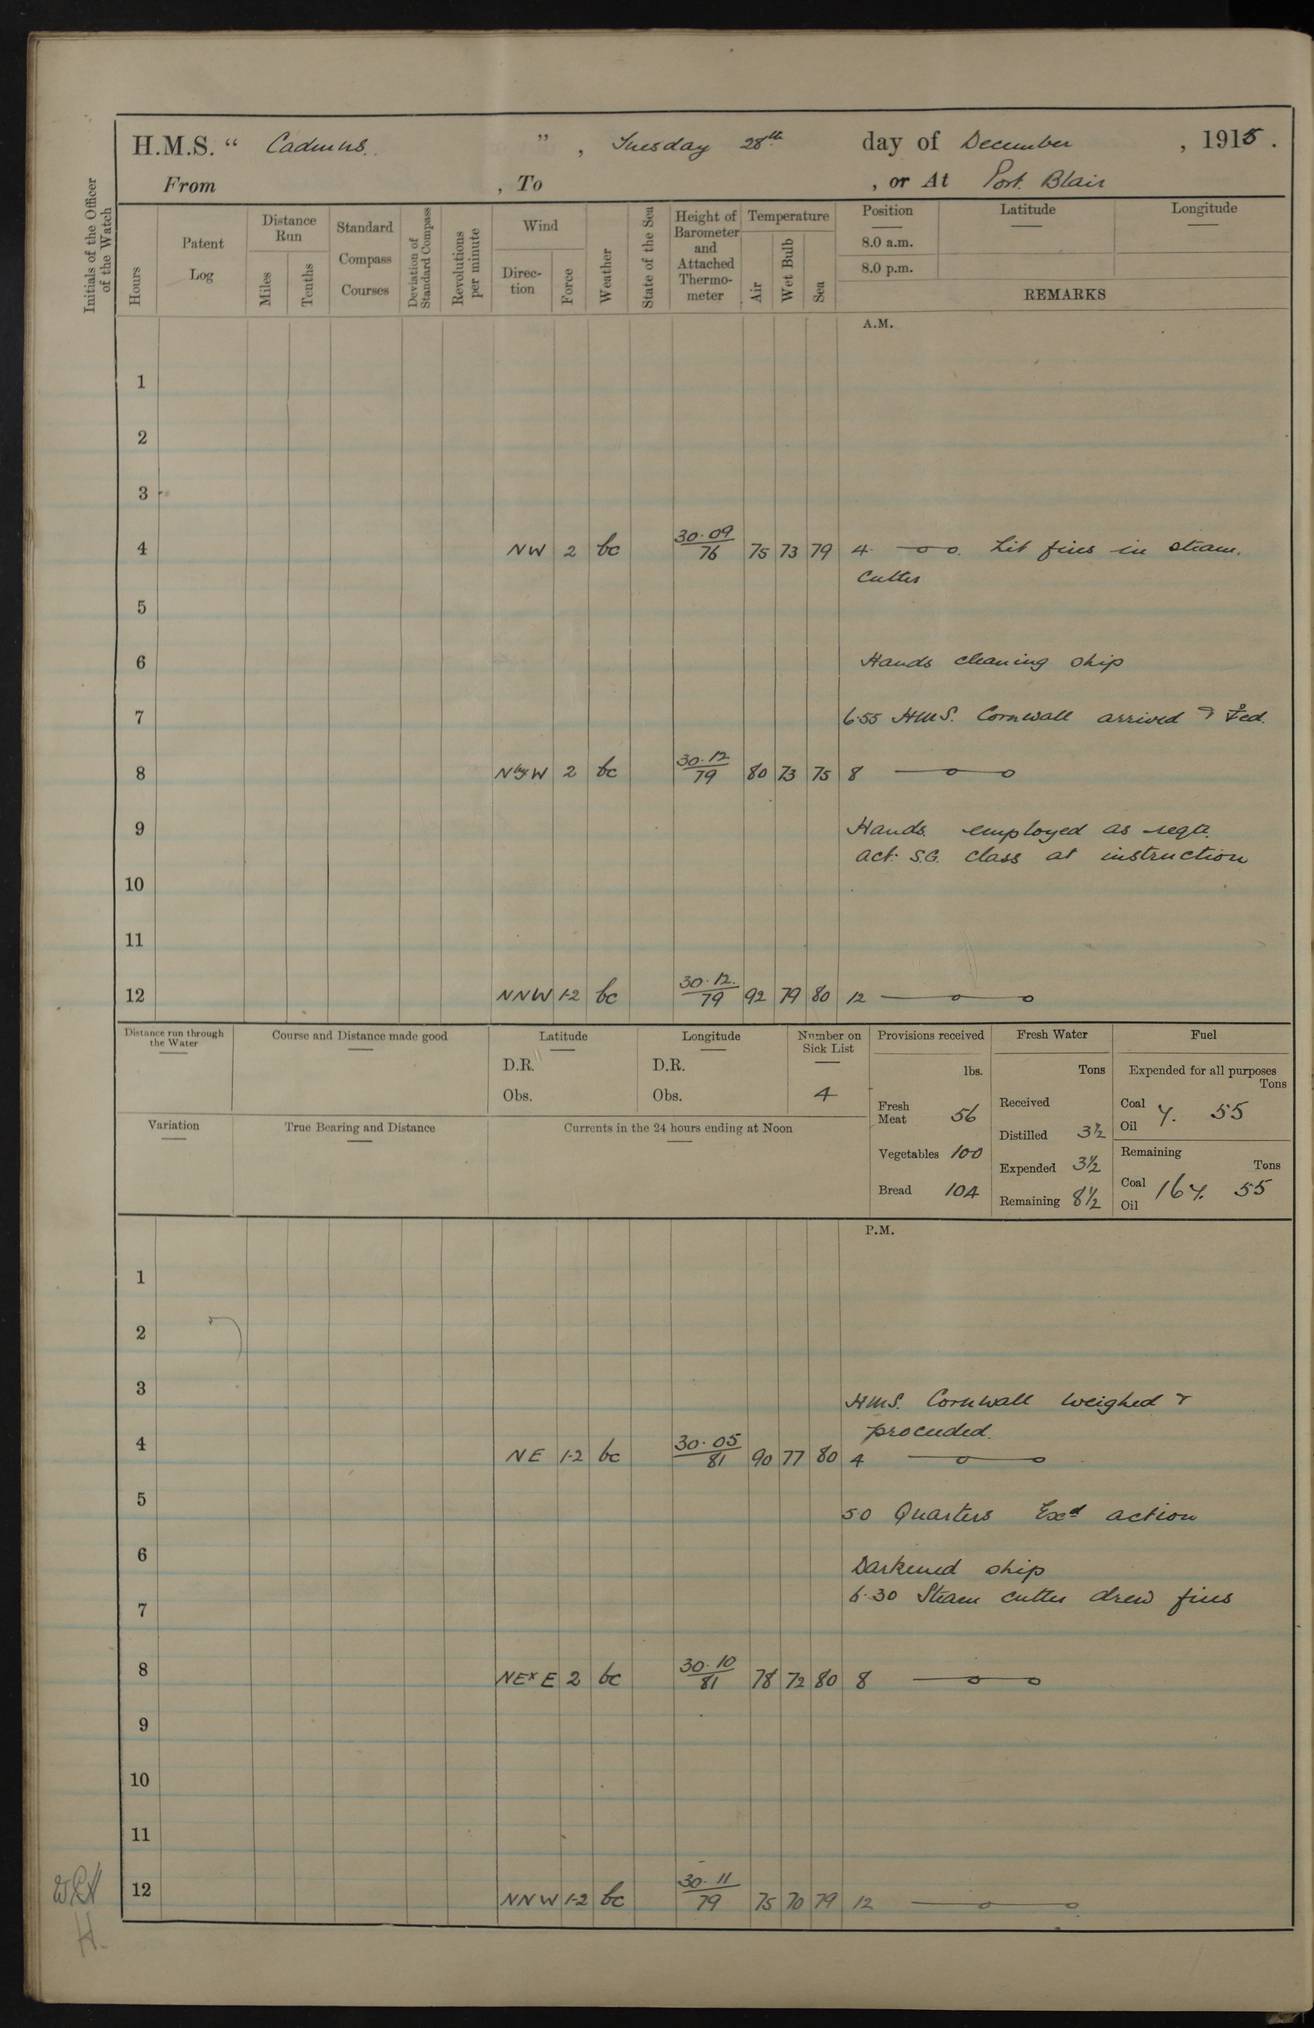 H.M.S. “ Cadmus. ” , Tuesday 28th day of December , 1915 .
From , To , or At Port Blair
Initials of the Officer of the Watch
Hours
Patent Log
Distance Run
Miles
Tenths
Standard Compass Courses
Deviation of Standard Compass
Revolutions per minute
Wind
Direc-tion
Force
Weather
State of the Sea
Height of Barometer and Attached Thermo-meter
Temperature
Air
Wet Bulb
Sea
Position Latitude Longitude
8.0 a.m.
8.0 p.m.
REMARKS
A.M.
1
2
3
4 NW 2 bc 30.09/76 75 73 79 4. Lit fires in steam.
cutter
5
6 Hands cleaning ship
7 6.55 HMS. Cornwall arrived &
8 NbyW 2 bc 30.12/79 80 73 75 8
9 Hands employed as reqd.
act. S.G. class at instruction
10
11
12 NNW 1-2 bc 30.12./79 92 79 80 12
Distance run through the Water
Course and Distance made good
Latitude
D.R.
Obs.
Longitude
D.R.
Obs.
Number on Sick List
4
Provisions received
lbs.
Fresh Meat 56
Vegetables 100
Bread 104
Fresh Water
Tons
Received
Distilled 3½
Expended 3½
Remaining 8½
Fuel
Expended for all purposes
Tons
Coal 7. 55
Oil
Remaining
Tons
Coal 167. 55
Oil
Variation
True Bearing and Distance
Currents in the 24 hours ending at Noon
P.M.
1
2
3 HMS. Cornwall weighed &
proceeded.
4 NE 1-2 bc 30.05/81 90 77 80 4
5 5 0 Quarters Exd action
6 Darkened ship
6.30 Steam cutter drew fires
7
8 NExE 2 bc 30.10/81 78 72 80 8
9
10
11
12 NNW 1-2 bc 30.11/79 75 70 79 12
H.